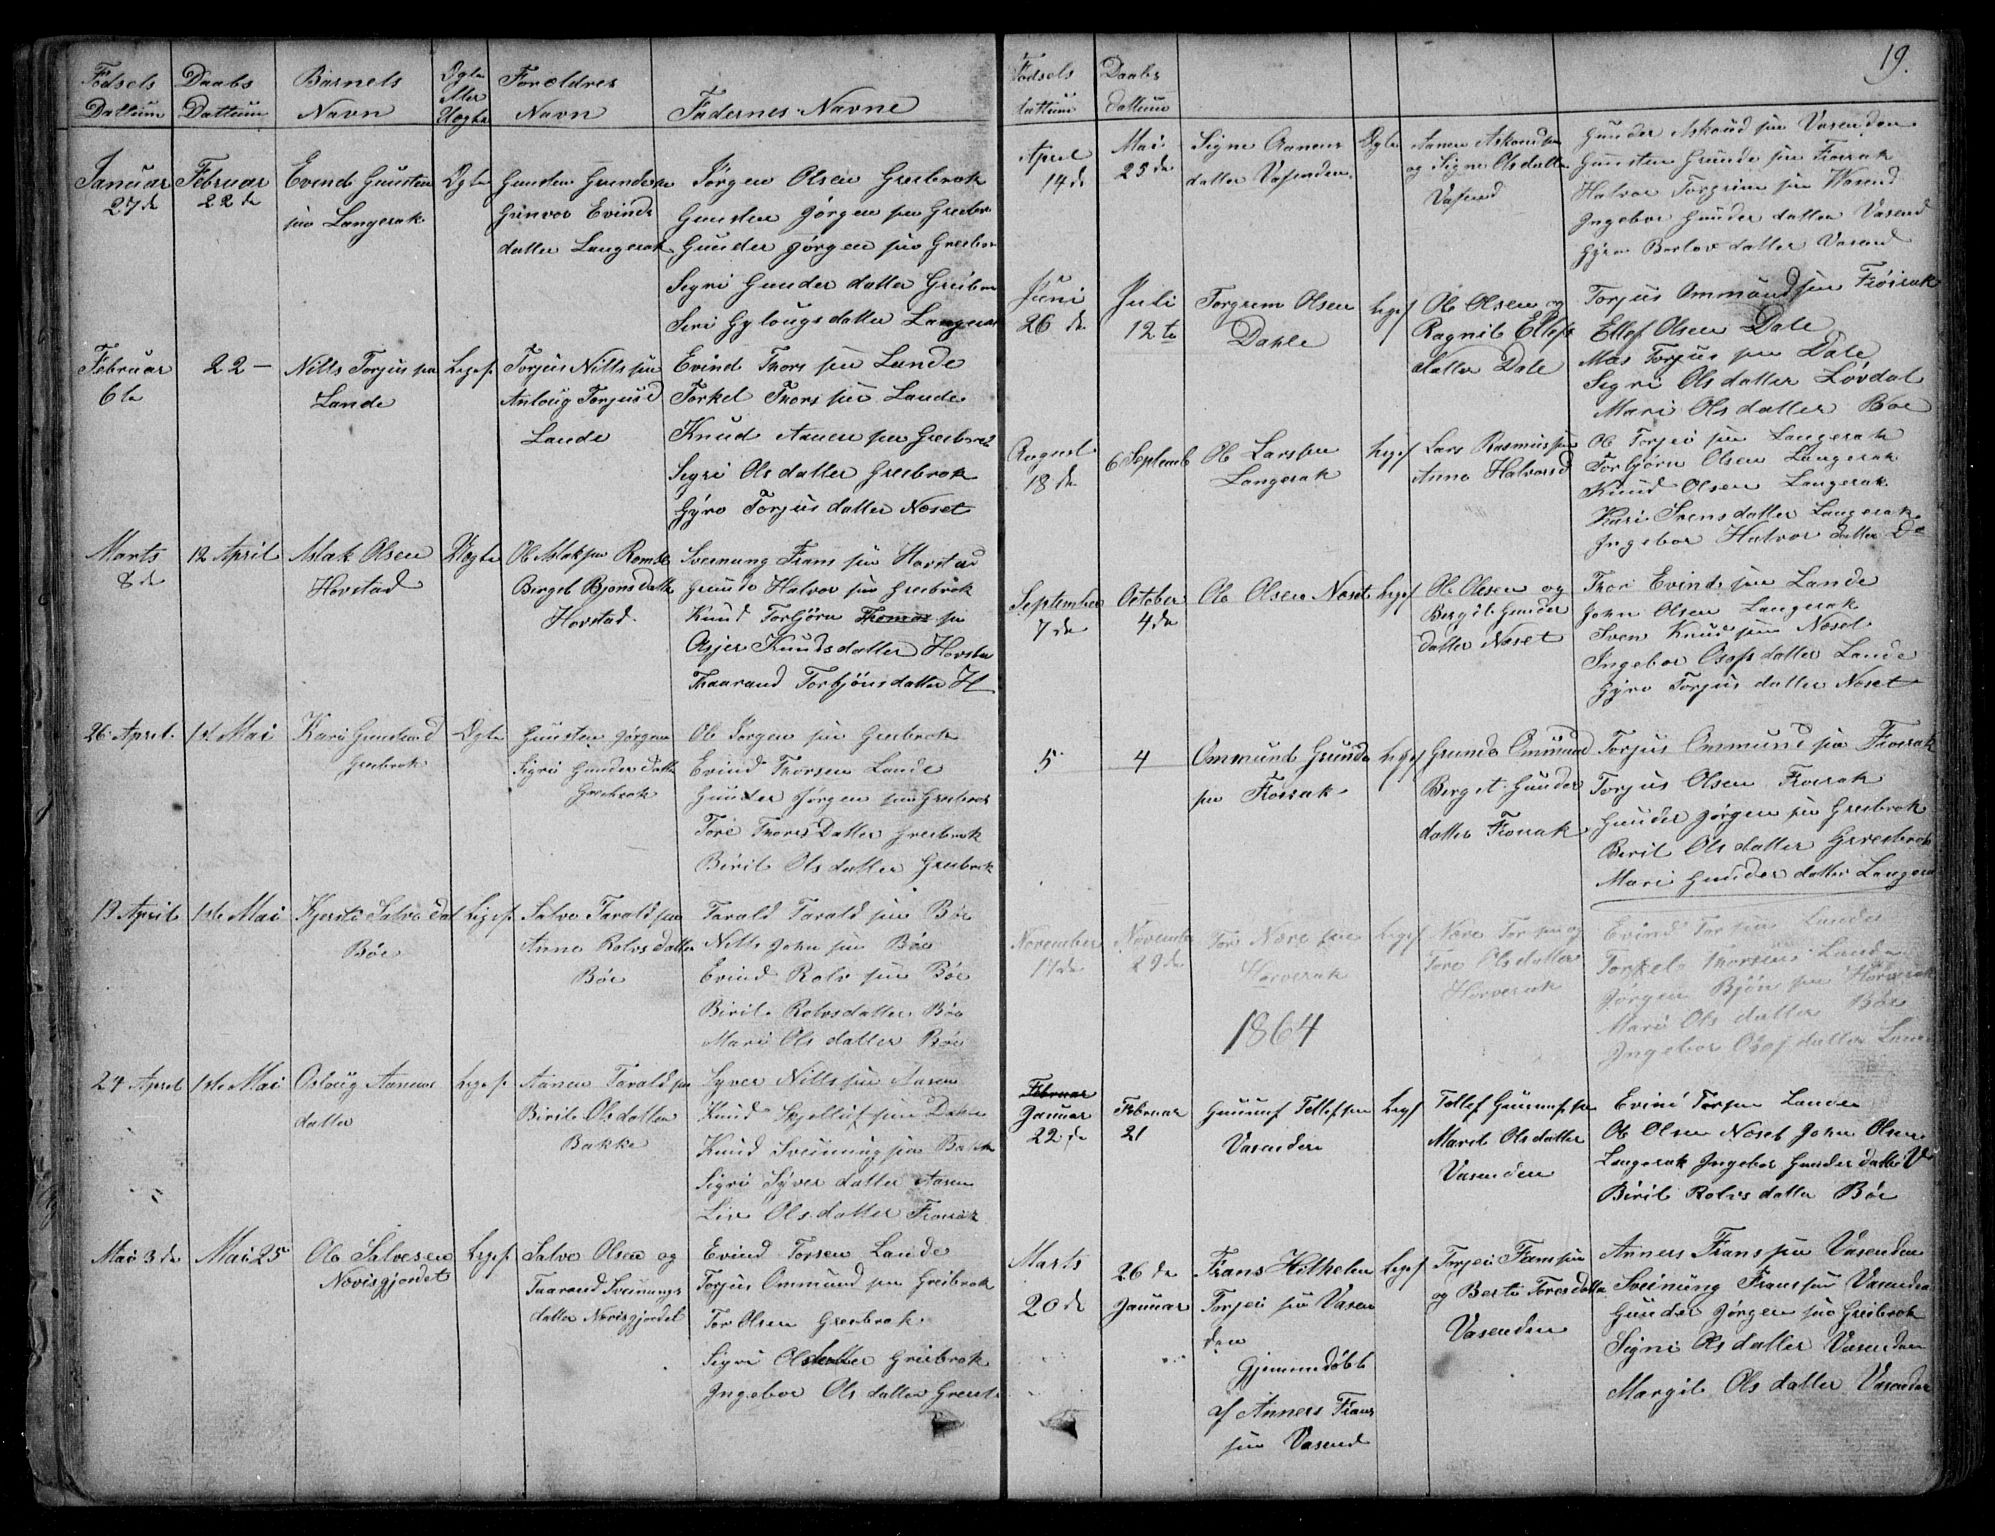 Fødsels Dattum
Daabs Dattum
Barnets Navn
Ægte eller Uægte
Forældres Navn
Fadernes Navne
Januar 27de
Februar 22de
Evind Gunsten
søn Langerak
Ægte
Gunsten
Gunvor Evinds
datter Langerak
Jørgen Olsen Greibrok
Gunsten Jørgen søn Greibro
Gunder Jørgen søn Greibro
Segri Gunder datter Greibro
Seri Gylougs datter Langerak
Februar 6te
22 –
Nills Torjus søn
Lande
Legef.
Torjus Nills søn
Anloug Torjus d
Lande
Evind Thors søn Lande
Torkel Thors søn Lande
Knud Aanen søn Greibrok
Segri Ols datter Greibrok
Gyro Torjus datter Næset
Marts 8de
12 April
Aslak Olsen
Hovstad
Uægte
Ole Aslak søn
Berget Bjøns datt
Hovstad
Sveinung Frans søn Hovstad
Grunde Halvor søn Greibrok
Knud Torbjørn Thomas søn
Asjer Knuds datter Hovsta
Thaarand Torbjøns datter H
26 April
1st Mai
Kari Gunsten d
Greibrok
Ægte
Gunsten Jørgen
Sigri Gunder datt
Greibrok
Ole Jørgen søn Greibrok
Evind Thorsen Lande
Gunder Jørgen søn Greibrok
Tore Thores Datter Greibrok
Birit Ols datter Greibrok
19 April
1ste Mai
Kjersti Salve dat
Bøe
Legef.
Salve Tarald søn
Anne Rolvs datter
Bøe
Tarald Tarald søn Bøe
Nills John søn Bøe
Evind Rolv søn Bøe
Birit Rolvsdatter Bøe
Mari Ols datter Bøe
24 April
1ste Mai
Osloug Aanens
datter
Legef.
Aanen Tarald søn
Birit Ols datter
Bakke
Syver Nills søn Aasen
Knud søn Dale
Knud Sveinung søn Bakk
Sigri Syver datter Aasen
Liv Ols datter Frøirak
Mai 3de
Mai 25
Ole Salvesen
Novisgjordet
Legef.
Salve Olsen og
Taarand Sveinungs
datter Novisgjordet
Evind Torsen Lande
Torjus Ommund søn Greibrok
Tor Olsen Greibrok
Sigri Olsdatter Greibrok
Ingebor Ols datter Greibr
19.
Fødsels dattum
Daabs dattum
April 14de
Mai 25de
Signe Aanens
datter Vasenden
Ægte
Aanen Askoud søn
og Signe Ols datter
Vasend
Gunder Askoud søn Vasenden
Gunsten Grunde søn Frøirak
Halvor Torgrim søn Wasend
Ingebor Gunder datter Vasend
Gyro datter Vasend
Juni 26de
Juli 12te
Torgrem Olsen
Dahle
Legef
Ole Olsen og
Ragnil Ellef
datter Dale
Torjus Ommund søn Frøirak
Ellef Olsen Dale
Mas Torjus søn Dale
Segri Ols datter Løvdal
Mari Ols datter Bøe
August 18de
6 Septemb
Ole Lars søn
Langerak
Legef
Lars Rasmus søn
Anne Halvorsd
Ole Torjei søn Langerak
Torbjørn Olsen Langerak
Knud Olsen Langerak
Kari Svensdatter Langerak
Ingebor Halvor datter De
September 7de
October 4de
Ole Olsen Næset
Legef
Ole Olesen og
Bergit Gunder
datter Næset
Thor Evind søn Lande
John Olsen Langerak
Sven Knud søn Næset
Ingebor datter Lande
Gyro Torjus datter Næset
5
4
Ommund Grunde
søn Frøirak
Legef
Grunde Ommund
Berget Gunder
datter Frøirak
Torjus Ommund søn Frøirak
Torjus Olsen Frøirak
Gunder Jørgen søn Greibrok
Berit Ols datter Greibrok
Mari Gunder datter Langera
November 17de
November 29de
Tor Nære søn
Horverak
Legef
Nære Tor søn og
Tore Ols datter
Horverak
Evind Tor søn Lande
Torkel Thorsen Lande
Jørgen Bjøn søn Horverak
Mari Ols datter Bøe
Ingebor datter Lan
1864
Februar
Januar 22de
Februar 21
Gunuf Tellef søn
Vasenden
Legf
Tellef Gunuf søn
Marit Ols datter
Vasenden
Evind Torsen Lande
Ole Olsen Næset John Olsen
Langerak Ingebor Gunder datter V
Birit Rolvs datter Bøe
Marts 20de
26de Januar
Frans Hilhelm
Torjei søn Vasen
den
Gjemmendøbt
af Anners Frans
søn Vasend
Legef
Torjei Frans søn
og Berte Toresdatter
Vasenden
Anners Frans søn Vasenden
Sveinung Frans søn Vasenden
Gunder Jørgen søn Greibrok
Signi Ols datter Vasenden
Margit Ols datter Vasenden